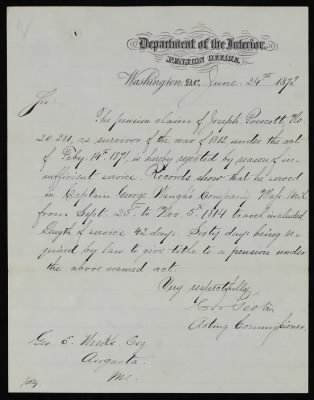 Department of the Interior,
PENSION OFFICE,
Washington, D.C., June 24th 1872
Sir:
The pension claim of Joseph Prescott, No.
20.281, as survivor of the war of 1812 under the act
of Feby 14th 1871, is hereby rejected by reason of in-
sufficient service. Records show that he served
in Captain George Company, Mass. Mil.
from Sept. 25th to Nov. 5th 1814 travel included.
Length of service 42 days. Sixty days being re-
quired by law to give title to a pension under
the above named act.
Very respectfully,
Acting Commissioner.
Geo. E. Weeks Esq
Augusta
Me.